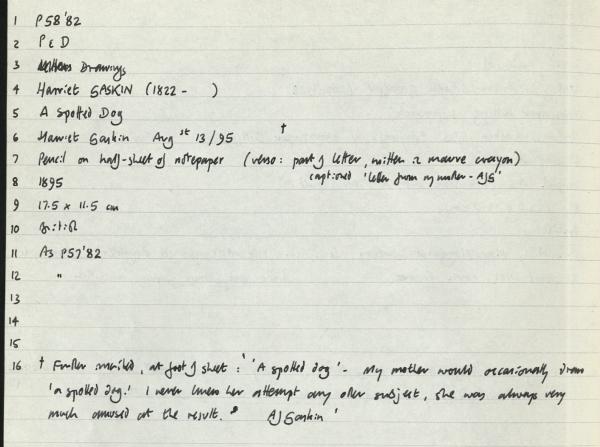 1 P58'82
2 P & D
3 Drawings
4 Harriet GASKIN (1822 - )
5 A Spotted Dog
6 Harriet Gaskin Aug st 13/95 †
7 Pencil on half-sheet of notepaper (verso: part of letter, written in mauve crayon)
captioned 'letter from my mother - AJG'
8 1895
9 17.5 x 11.5 cm
10 British
11 As P57'82
12 "
13
14
15
16 † Further inscribed, at foot of sheet: 'A spotted dog' - My mother would occasionally draw
'a spotted dog.' I never knew her attempt any other subject, she was always very
much amused at the result. AJGaskin'